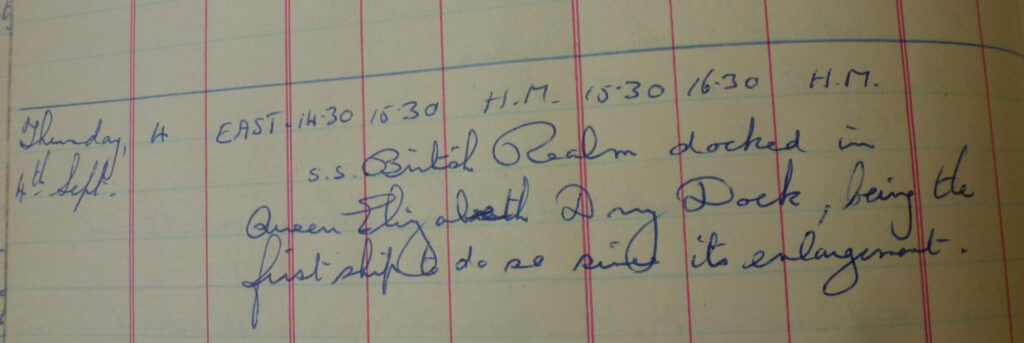 Thursday, 4 EAST. 14·30 15·30 H.M. 15·30 16·30 H.M.
4th Sept. s.s. British Realm docked in
Queen Elizabeth Dry Dock, being the
first ship to do so since its enlargement.